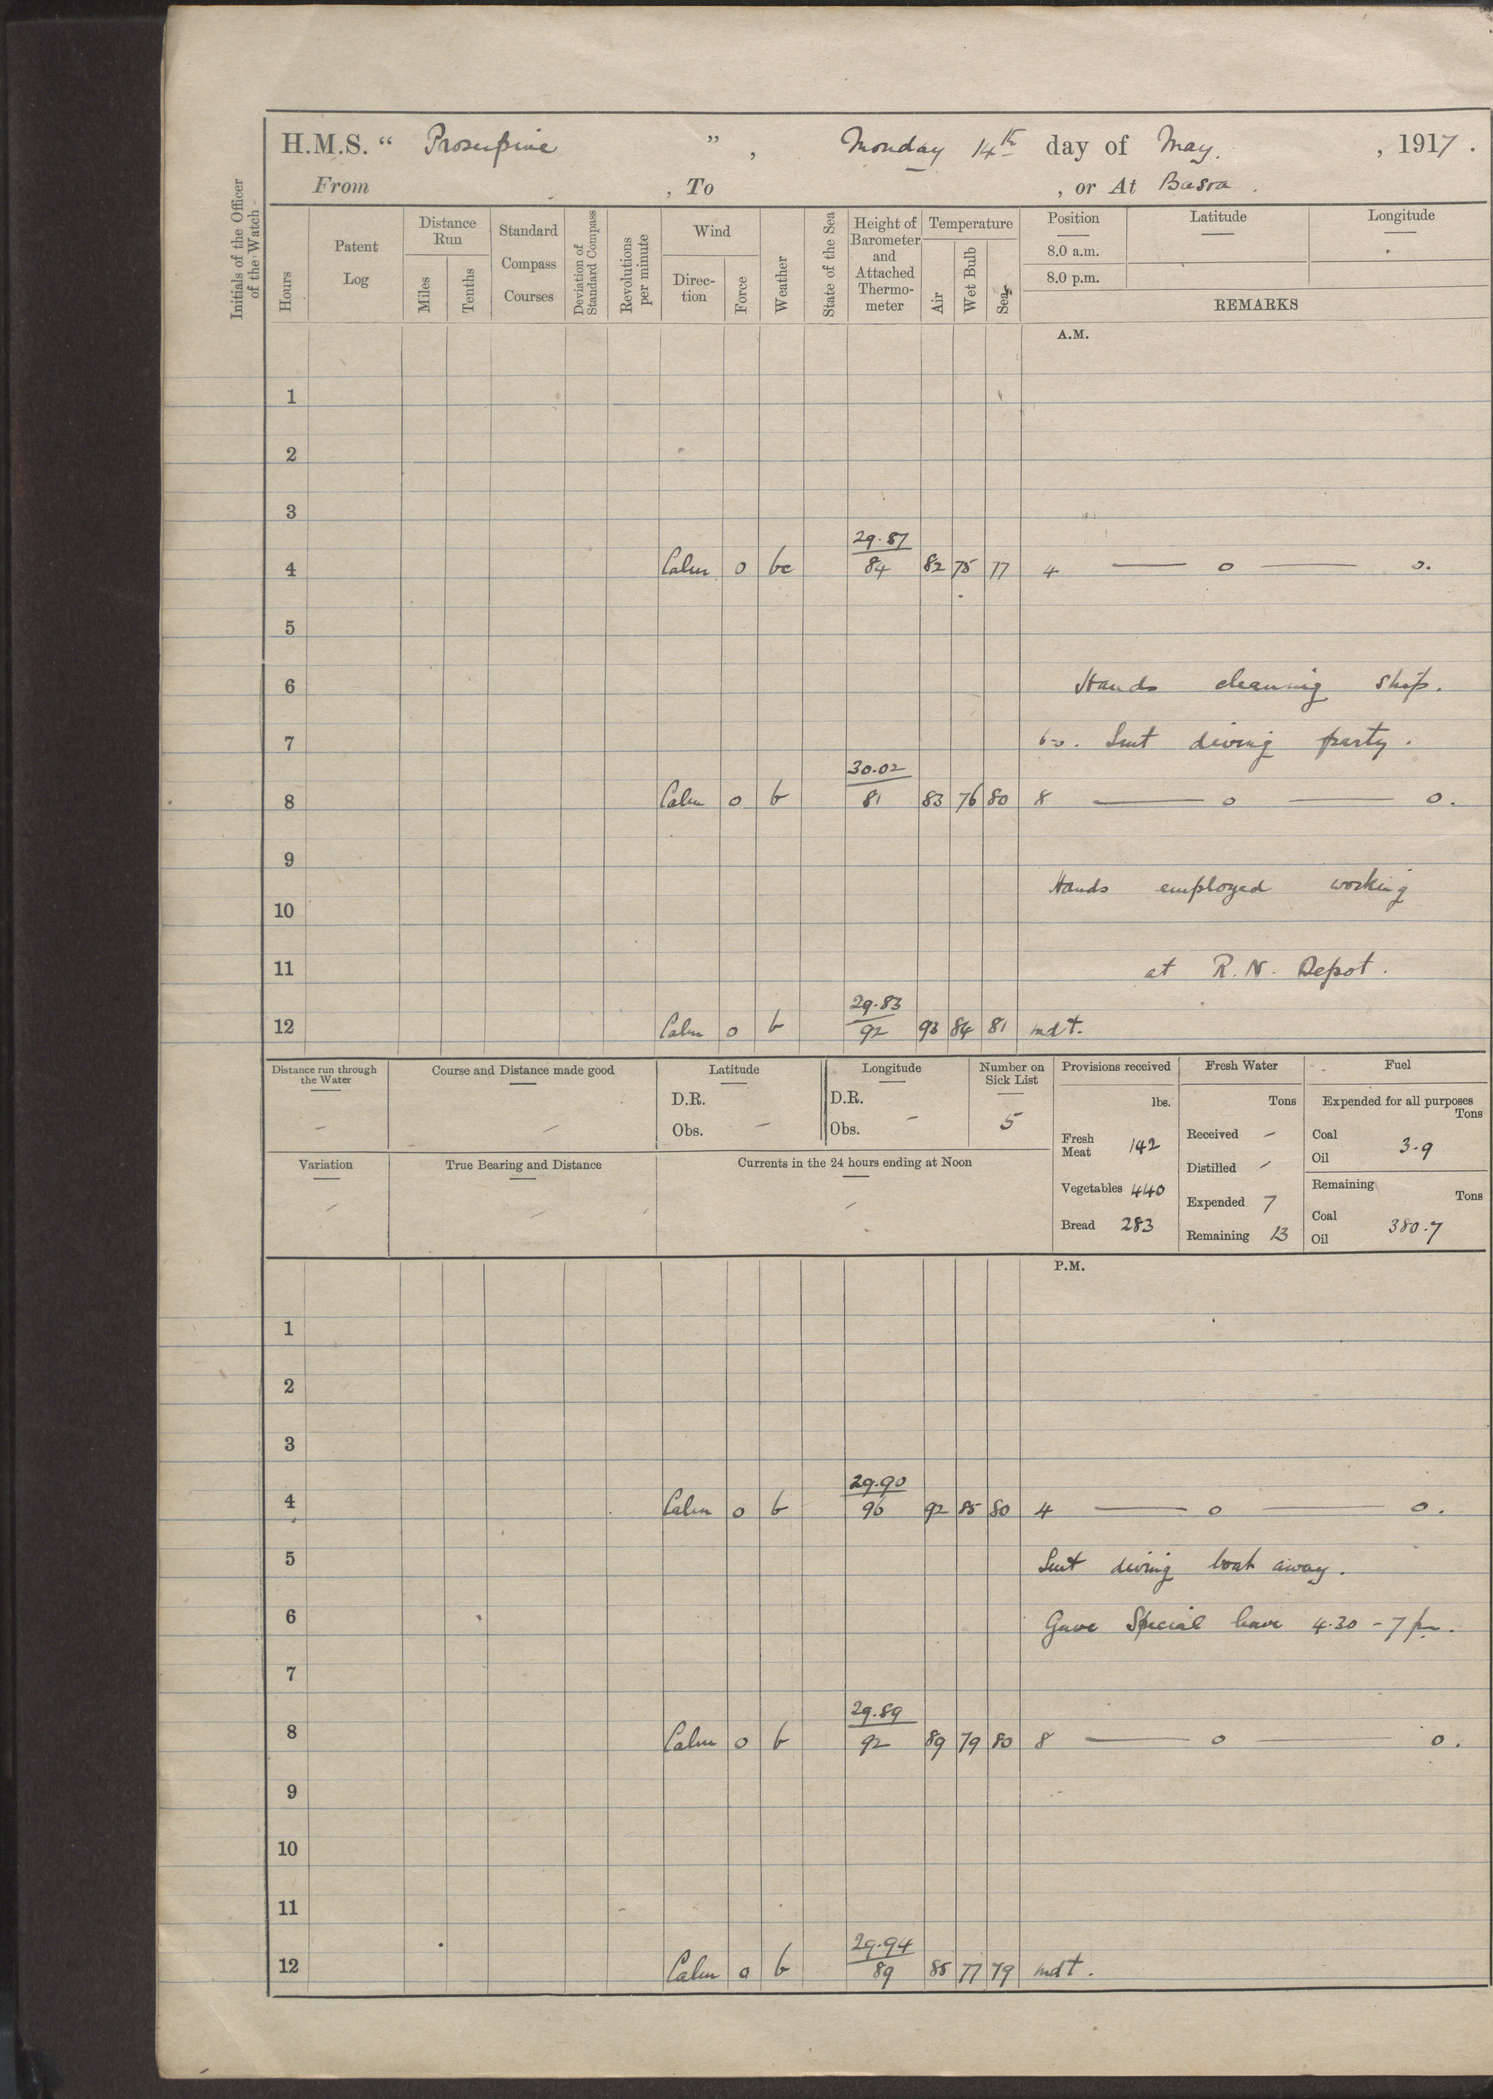 H.M.S. “ Proserpine ” , Monday 14th day of May. , 1917.
From , To , or At Basra .
Initials of the Officer of the Watch
Hours
Patent Log
Distance Run
Miles
Tenths
Standard Compass Courses
Deviation of Standard Compass
Revolutions per minute
Wind
Direction
Force
Weather
State of the Sea
Height of Barometer and Attached Thermometer
Temperature
Air
Wet Bulb
Sea
Position Latitude Longitude
8.0 a.m.
8.0 p.m.
REMARKS
A.M.
1
2
3
29.87
4 Calm 0 bc 84 82 75 77 4 — o — o.
5
6 Hands cleaning ship.
7 6.0. Sent diving party.
30.02
8 Calm 0 b 81 83 76 80 8 — o — o.
9
Hands employed working
10
11 at R.N. Depot.
29.83
12 Calm 0 b 92 93 84 81 mdt.
Distance run through the Water –
Course and Distance made good –
Latitude
D.R.
Obs. –
Longitude
D.R.
Obs. –
Number on Sick List
5
Provisions received
lbs.
Fresh Meat 142
Vegetables 440
Bread 283
Fresh Water
Tons
Received –
Distilled –
Expended 7
Remaining 13
Fuel
Expended for all purposes
Tons
Coal
Oil 3.9
Remaining
Tons
Coal
Oil 380.7
Variation –
True Bearing and Distance –
Currents in the 24 hours ending at Noon –
P.M.
1
2
3
29.90
4 Calm 0 b 96 92 85 80 4 — o — o.
5 Sent diving boat away.
6 Gave Special leave 4.30 – 7 pm.
7
29.89
8 Calm 0 b 92 89 79 80 8 — o — o.
9
10
11
29.94
12 Calm 0 b 89 85 77 79 mdt.